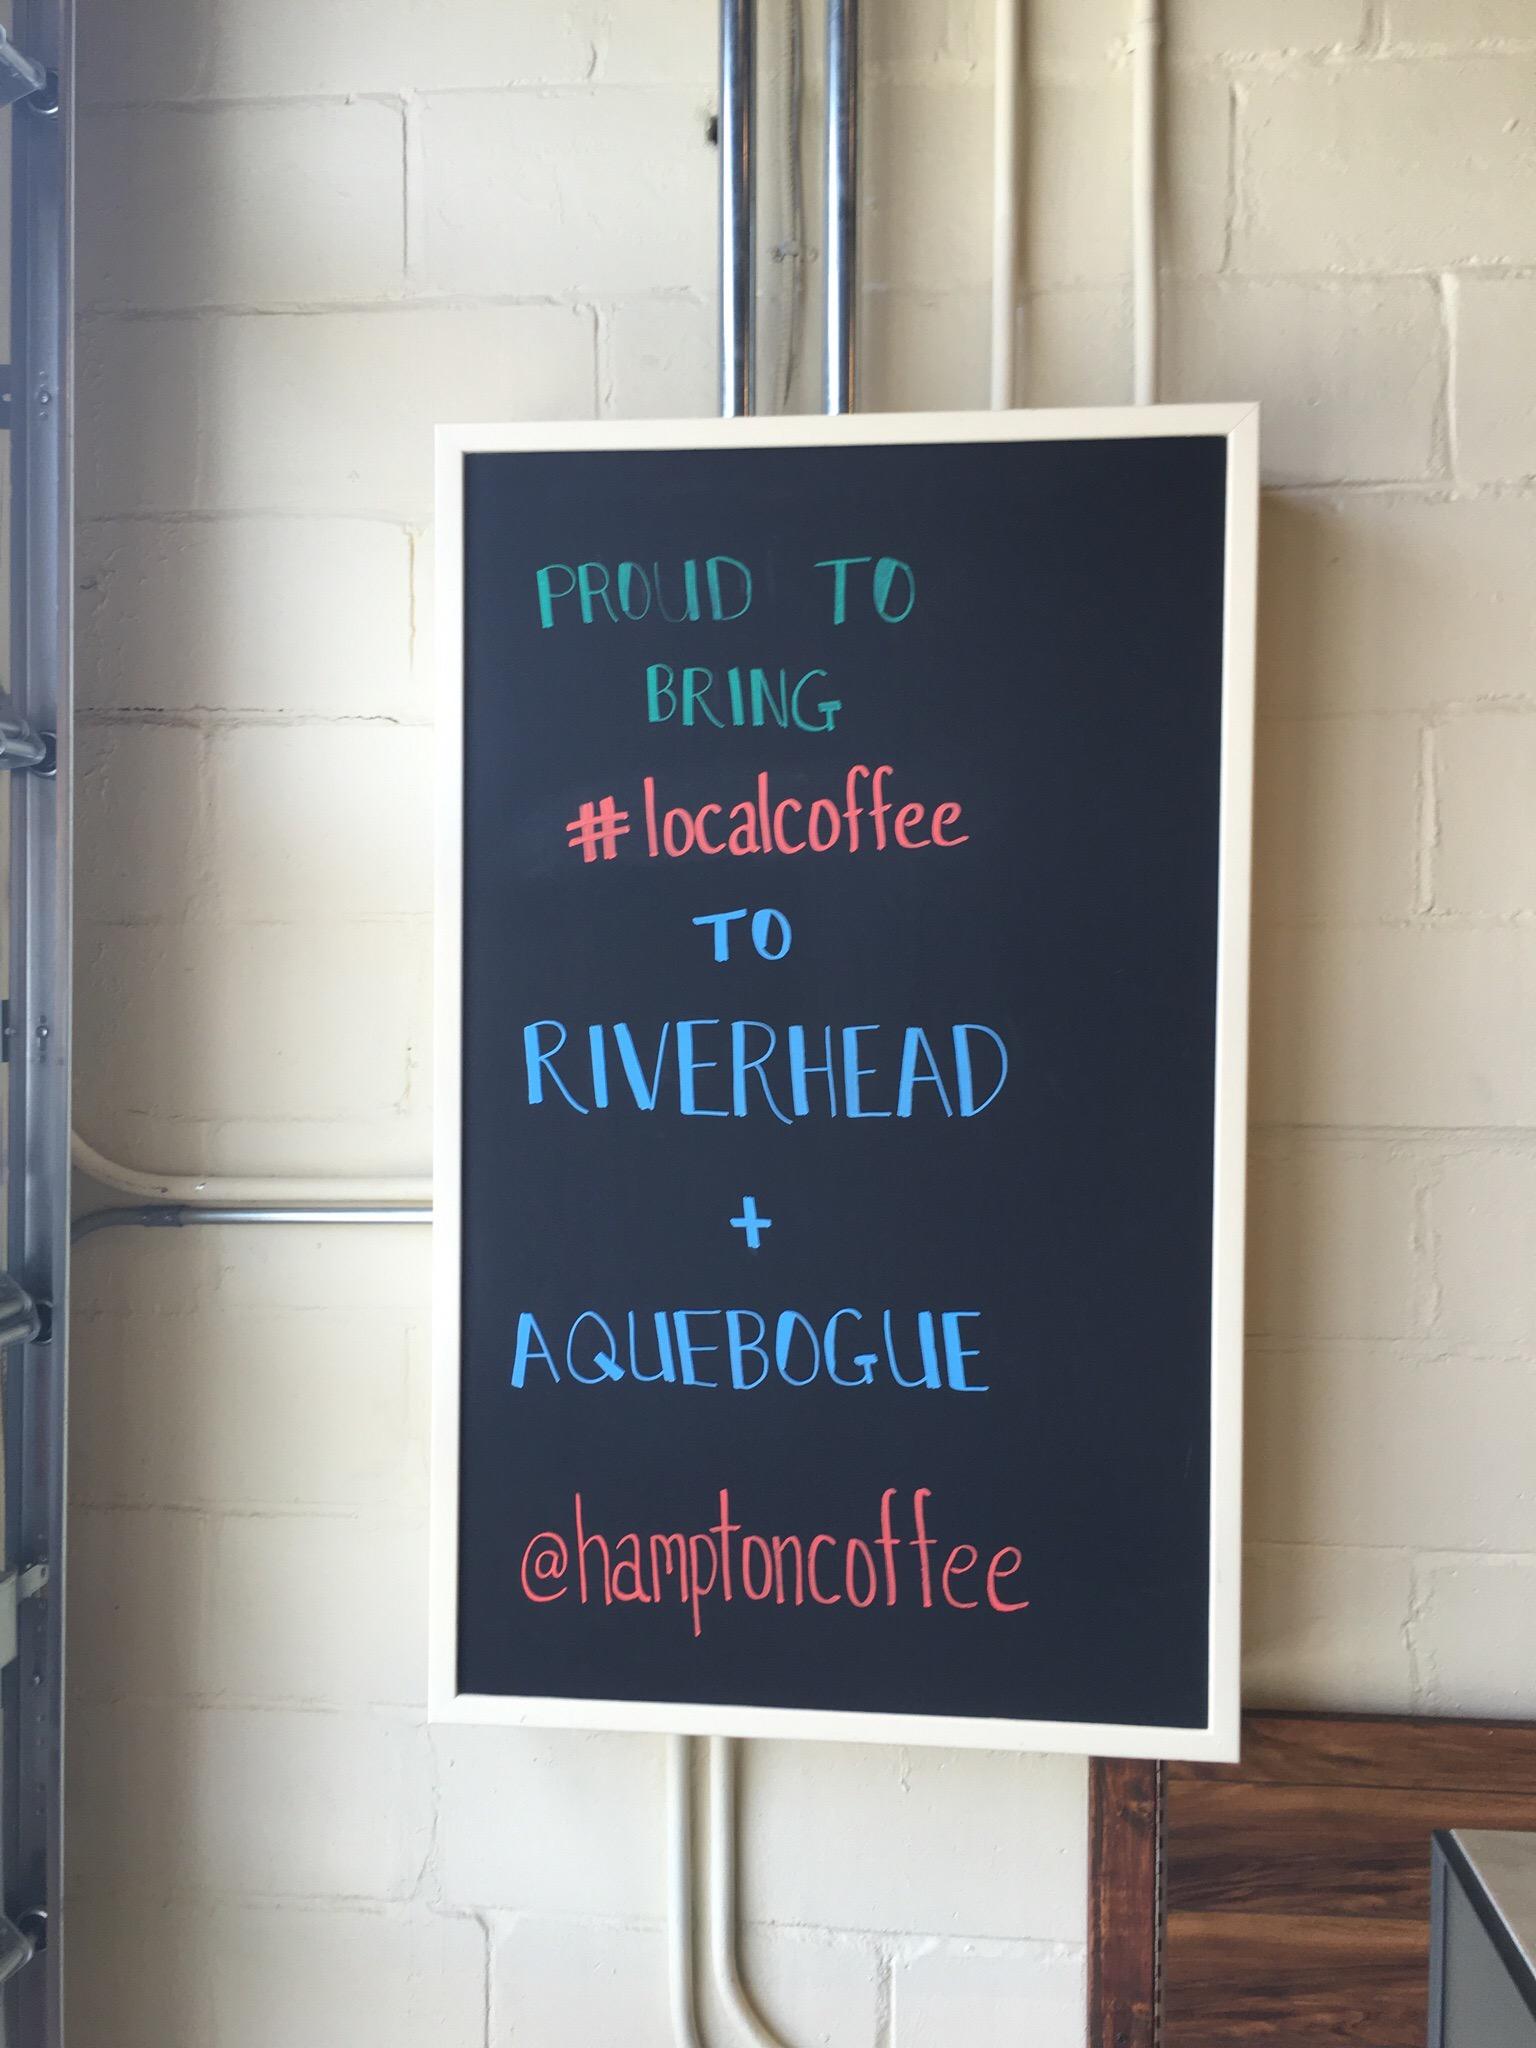 PROUD TO
BRING
#localcoffee
TO
RIVERHEAD
+
AQUEBOGUE
@hamptoncoffee